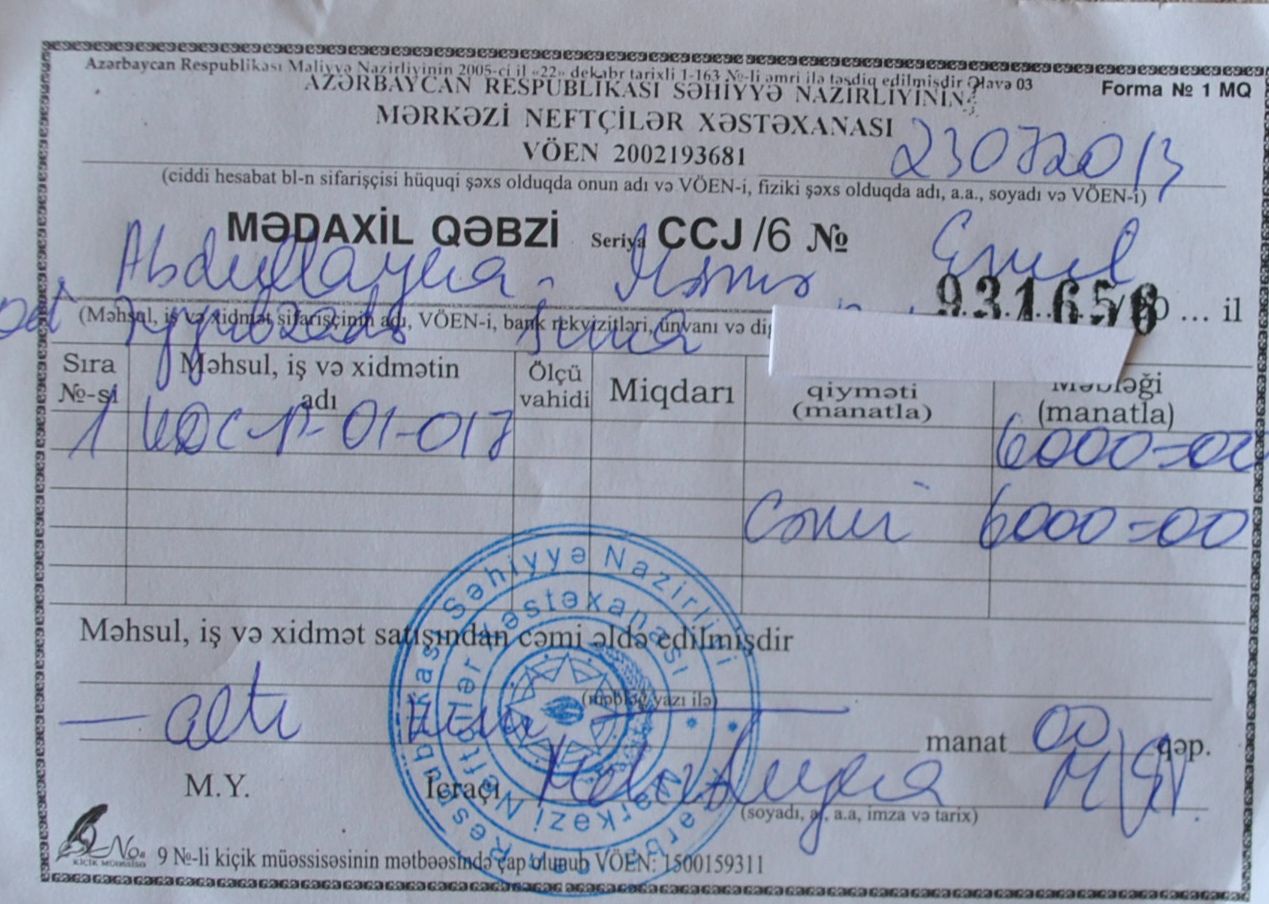 Azərbaycan Respublikası Maliyyə Nazirliyinin 2005-ci il «22» dekabr tarixli 1-163 №-li əmri ilə təsdiq edilmişdir Əlavə 03
Forma № 1 MQ
AZƏRBAYCAN RESPUBLİKASI SƏHİYYƏ NAZİRLİYİNİN
MƏRKƏZİ NEFTÇİLƏR XƏSTƏXANASI
VÖEN 2002193681
23072013
(ciddi hesabat bl-n sifarişçisi hüquqi şəxs olduqda onun adı və VÖEN-i, fiziki şəxs olduqda adı, a.a., soyadı və VÖEN-i)
MƏDAXİL QƏBZİ Seriya CCJ /6 №
Abdullayeva
931656
... il
(Məhsul, iş və xidmət sifarişçinin adı, VÖEN-i, bank rekvizitləri, ünvanı və
Sıra №-si
Məhsul, iş və xidmətin adı
Ölçü vahidi
Miqdarı
qiyməti (manatla)
Məbləği (manatla)
1 01-017 6000-00
Cəmi 6000-00
Məhsul, iş və xidmət satışından cəmi əldə edilmişdir
(məbləğ yazı ilə)
altı min manat 00 qəp.
M.Y. İcraçı
(soyadı, a, a.a, imza və tarix)
KİÇİK MÜƏSSİSƏ
9 №-li kiçik müəssisəsinin mətbəəsində çap olunub VÖEN: 1500159311